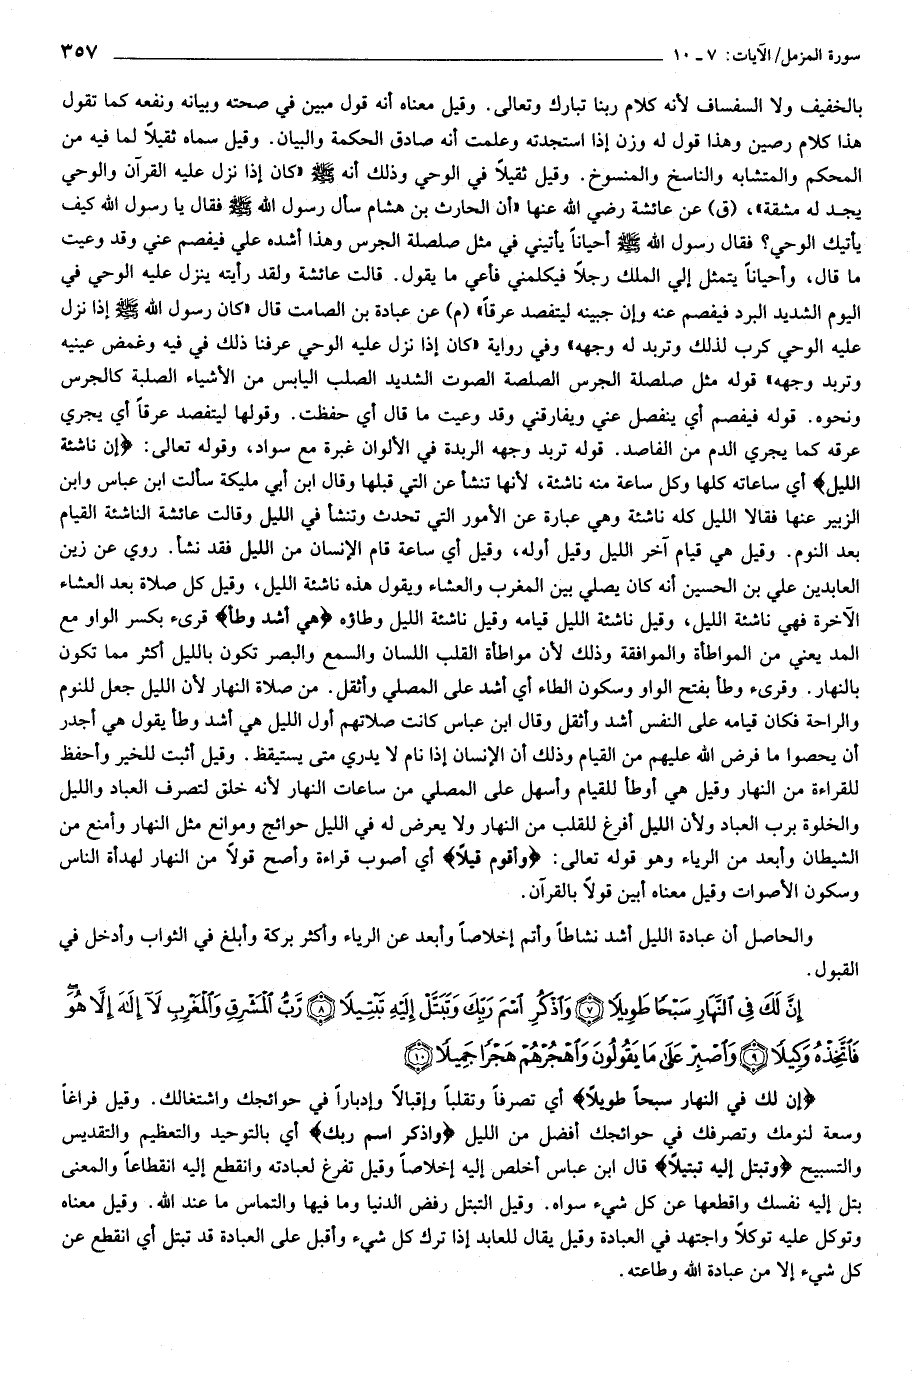 سورة المزمل/ الآيات: ٧ ـ ١٠ ٣٥٧
بالخفيف ولا السفساف لأنه كلام ربنا تبارك وتعالى. وقيل معناه أنه قول مبين في صحته وبيانه ونفعه كما تقول
هذا كلام رصين وهذا قول له وزن إذا استجدته وعلمت أنه صادق الحكمة والبيان. وقيل سماه ثقيلاً لما فيه من
المحكم والمتشابه والناسخ والمنسوخ. وقيل ثقيلاً في الوحي وذلك أنه ﷺ «كان إذا نزل عليه القرآن والوحي
يجد له مشقة»، (ق) عن عائشة رضي الله عنها «أن الحارث بن هشام سأل رسول الله ﷺ فقال يا رسول الله كيف
يأتيك الوحي؟ فقال رسول الله ﷺ أحياناً يأتيني في مثل صلصلة الجرس وهذا أشده علي فيفصم عني وقد وعيت
ما قال، وأحياناً يتمثل إلي الملك رجلاً فيكلمني فأعي ما يقول. قالت عائشة ولقد رأيته ينزل عليه الوحي في
اليوم الشديد البرد فيفصم عنه وإن جبينه ليتفصد عرقاً» (م) عن عبادة بن الصامت قال «كان رسول الله ﷺ إذا نزل
عليه الوحي كرب لذلك وتربد له وجهه» وفي رواية «كان إذا نزل عليه الوحي عرفنا ذلك في فيه وغمض عينيه
وتربد وجهه» قوله مثل صلصلة الجرس الصلصة الصوت الشديد الصلب اليابس من الأشياء الصلبة كالجرس
ونحوه. قوله فيفصم أي ينفصل عني ويفارقني وقد وعيت ما قال أي حفظت. وقولها ليتفصد عرقاً أي يجري
عرقه كما يجري الدم من الفاصد. قوله تربد وجهه الربدة في الألوان غبرة مع سواد، وقوله تعالى: ﴿إن ناشئة
الليل﴾ أي ساعاته كلها وكل ساعة منه ناشئة، لأنها تنشأ عن التي قبلها وقال ابن أبي مليكة سألت ابن عباس وابن
الزبير عنها فقالا الليل كله ناشئة وهي عبارة عن الأمور التي تحدث وتنشأ في الليل وقالت عائشة الناشئة القيام
بعد النوم. وقيل هي قيام آخر الليل وقيل أوله، وقيل أي ساعة قام الإنسان من الليل فقد نشأ. روي عن زين
العابدين علي بن الحسين أنه كان يصلي بين المغرب والعشاء ويقول هذه ناشئة الليل، وقيل كل صلاة بعد العشاء
الآخرة فهي ناشئة الليل، وقيل ناشئة الليل قيامه وقيل ناشئة الليل وطاؤه ﴿هي أشد وطأ﴾ قرىء بكسر الواو مع
المد يعني من المواطأة والموافقة وذلك لأن مواطأة القلب اللسان والسمع والبصر تكون بالليل أكثر مما تكون
بالنهار. وقرىء وطأ بفتح الواو وسكون الطاء أي أشد على المصلي وأثقل. من صلاة النهار لأن الليل جعل للنوم
والراحة فكان قيامه على النفس أشد وأثقل وقال ابن عباس كانت صلاتهم أول الليل هي أشد وطأ يقول هي أجدر
أن يحصوا ما فرض الله عليهم من القيام وذلك أن الإنسان إذا نام لا يدري متى يستيقظ. وقيل أثبت للخير وأحفظ
للقراءة من النهار وقيل هي أوطأ للقيام وأسهل على المصلي من ساعات النهار لأنه خلق لتصرف العباد والليل
والخلوة برب العباد ولأن الليل أفرغ للقلب من النهار ولا يعرض له في الليل حوائج وموانع مثل النهار وأمنع من
الشيطان وأبعد من الرياء وهو قوله تعالى: ﴿وأقوم قيلاً﴾ أي أصوب قراءة وأصح قولاً من النهار لهدأة الناس
وسكون الأصوات وقيل معناه أبين قولاً بالقرآن.
والحاصل أن عبادة الليل أشد نشاطاً وأتم إخلاصاً وأبعد عن الرياء وأكثر بركة وأبلغ في الثواب وأدخل في
القبول.
إِنَّ لَكَ فِي ٱلنَّهَارِ سَبْحًا طَوِيلًا ٧ وَٱذْكُرِ ٱسْمَ رَبِّكَ وَتَبَتَّلْ إِلَيْهِ تَبْتِيلًا ٨ رَّبُّ ٱلْمَشْرِقِ وَٱلْمَغْرِبِ لَآ إِلَٰهَ إِلَّا هُوَ
فَٱتَّخِذْهُ وَكِيلًا ٩ وَٱصْبِرْ عَلَىٰ مَا يَقُولُونَ وَٱهْجُرْهُمْ هَجْرًا جَمِيلًا ١٠
﴿إن لك في النهار سبحاً طويلاً﴾ أي تصرفاً وتقلباً وإقبالاً وإدباراً في حوائجك واشتغالك. وقيل فراغاً
وسعة لنومك وتصرفك في حوائجك أفضل من الليل ﴿واذكر اسم ربك﴾ أي بالتوحيد والتعظيم والتقديس
والتسبيح ﴿وتبتل إليه تبتيلاً﴾ قال ابن عباس أخلص إليه إخلاصاً وقيل تفرغ لعبادته وانقطع إليه انقطاعاً والمعنى
بتل إليه نفسك واقطعها عن كل شيء سواه. وقيل التبتل رفض الدنيا وما فيها والتماس ما عند الله. وقيل معناه
وتوكل عليه توكلاً واجتهد في العبادة وقيل يقال للعابد إذا ترك كل شيء وأقبل على العبادة قد تبتل أي انقطع عن
كل شيء إلا من عبادة الله وطاعته.